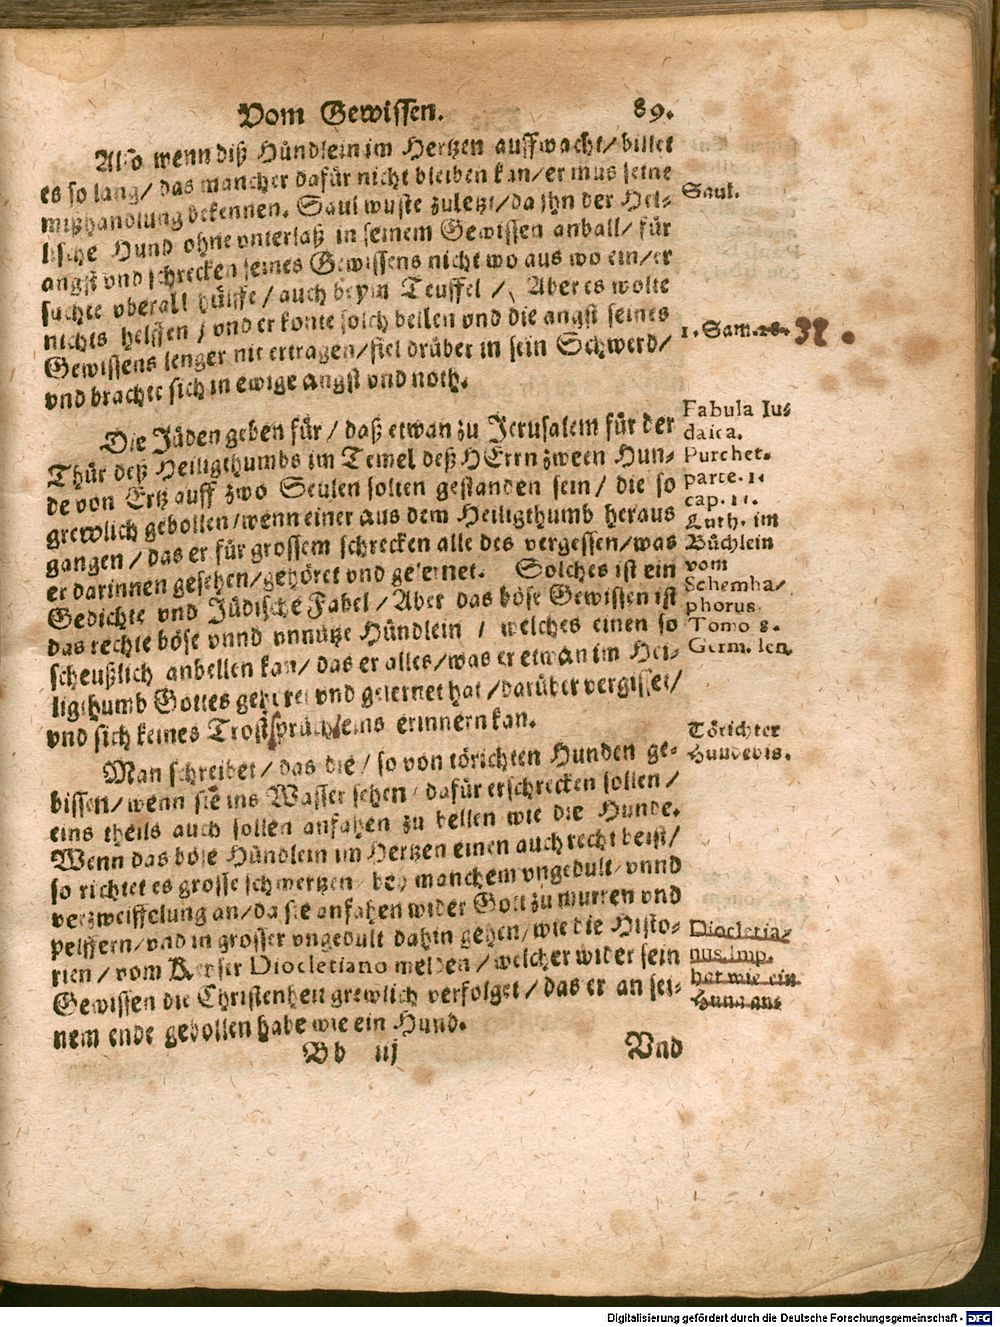 Vom Gewissen. 89.
Also wenn diß Hündlein im Hertzen auffwacht/ billet
es so lang/ das mancher dafür nicht bleiben kan/ er mus seine
mißhandlung bekennen. Saul wuste zuletzt/ da jhn der Hel-
lische Hund ohne vnterlaß in seinem Gewissen anball/ für
angst vnd schrecken seines Gewissens nicht wo aus wo ein/ er
suchte vberall hülffe/ auch beym Teuffel/ Aber es wolte
nichts helffen/ vnd er konte solch beilen vnd die angst seines
Gewissens lenger nit ertragen/ fiel drüber in sein Schwerd/
vnd brachte sich in ewige angst vnd noth.
Saul.
1. Sam. 28. 32.
Die Jüden geben für/ daß etwan zu Jerusalem für der
Thür deß Heiligthumbs im Temel deß HErrn zween Hun-
de von Ertz auff zwo Seulen solten gestanden sein/ die so
grewlich gebollen/ wenn einer aus dem Heiligthumb heraus
gangen/ das er für grossem schrecken alle des vergessen/ was
er darinnen gesehen/ gehöret vnd gelernet. Solches ist ein
Gedichte vnd Jüdische Fabel/ Aber das böse Gewissen ist
das rechte böse vnnd vnnütze Hündlein/ welches einen so
scheußlich anbellen kan/ das er alles/ was er etwan im Hei-
ligthumb Gottes gehöret vnd gelernet hat/ darüber vergisset/
vnd sich keines Trostsprüchleins erinnern kan.
Fabula Iu-
daica.
Purchet.
parte. 1.
cap. 11.
Luth. im
Büchlein
vom
Schemha-
phorus
Tomo 8.
Germ. Jen.
Man schreibet/ das die/ so von törichten Hunden ge-
bissen/ wenn sie ins Wasser sehen/ dafür erschrecken sollen/
eins theils auch sollen anfahen zu bellen wie die Hunde.
Wenn das böse Hündlein im Hertzen einen auch recht beist/
so richtet es grosse schmertzen/ bey manchem vngedult/ vnnd
verzweiffelung an/ da sie anfahen wider Gott zu murren vnd
pelffern/ vnd in grosser vngedult dahin gehen/ wie die Histo-
rien/ vom Keyser Diocletiano melden/ welcher wider sein
Gewissen die Christenheit grewlich verfolget/ das er an sei-
nem ende gebollen habe wie ein Hund.
Törichter
Hundebis.
Diocletia-
nus Imp.
hat wie ein
Hund ans
Bb iij Vnd
Digitalisierung gefördert durch die Deutsche Forschungsgemeinschaft - DFG